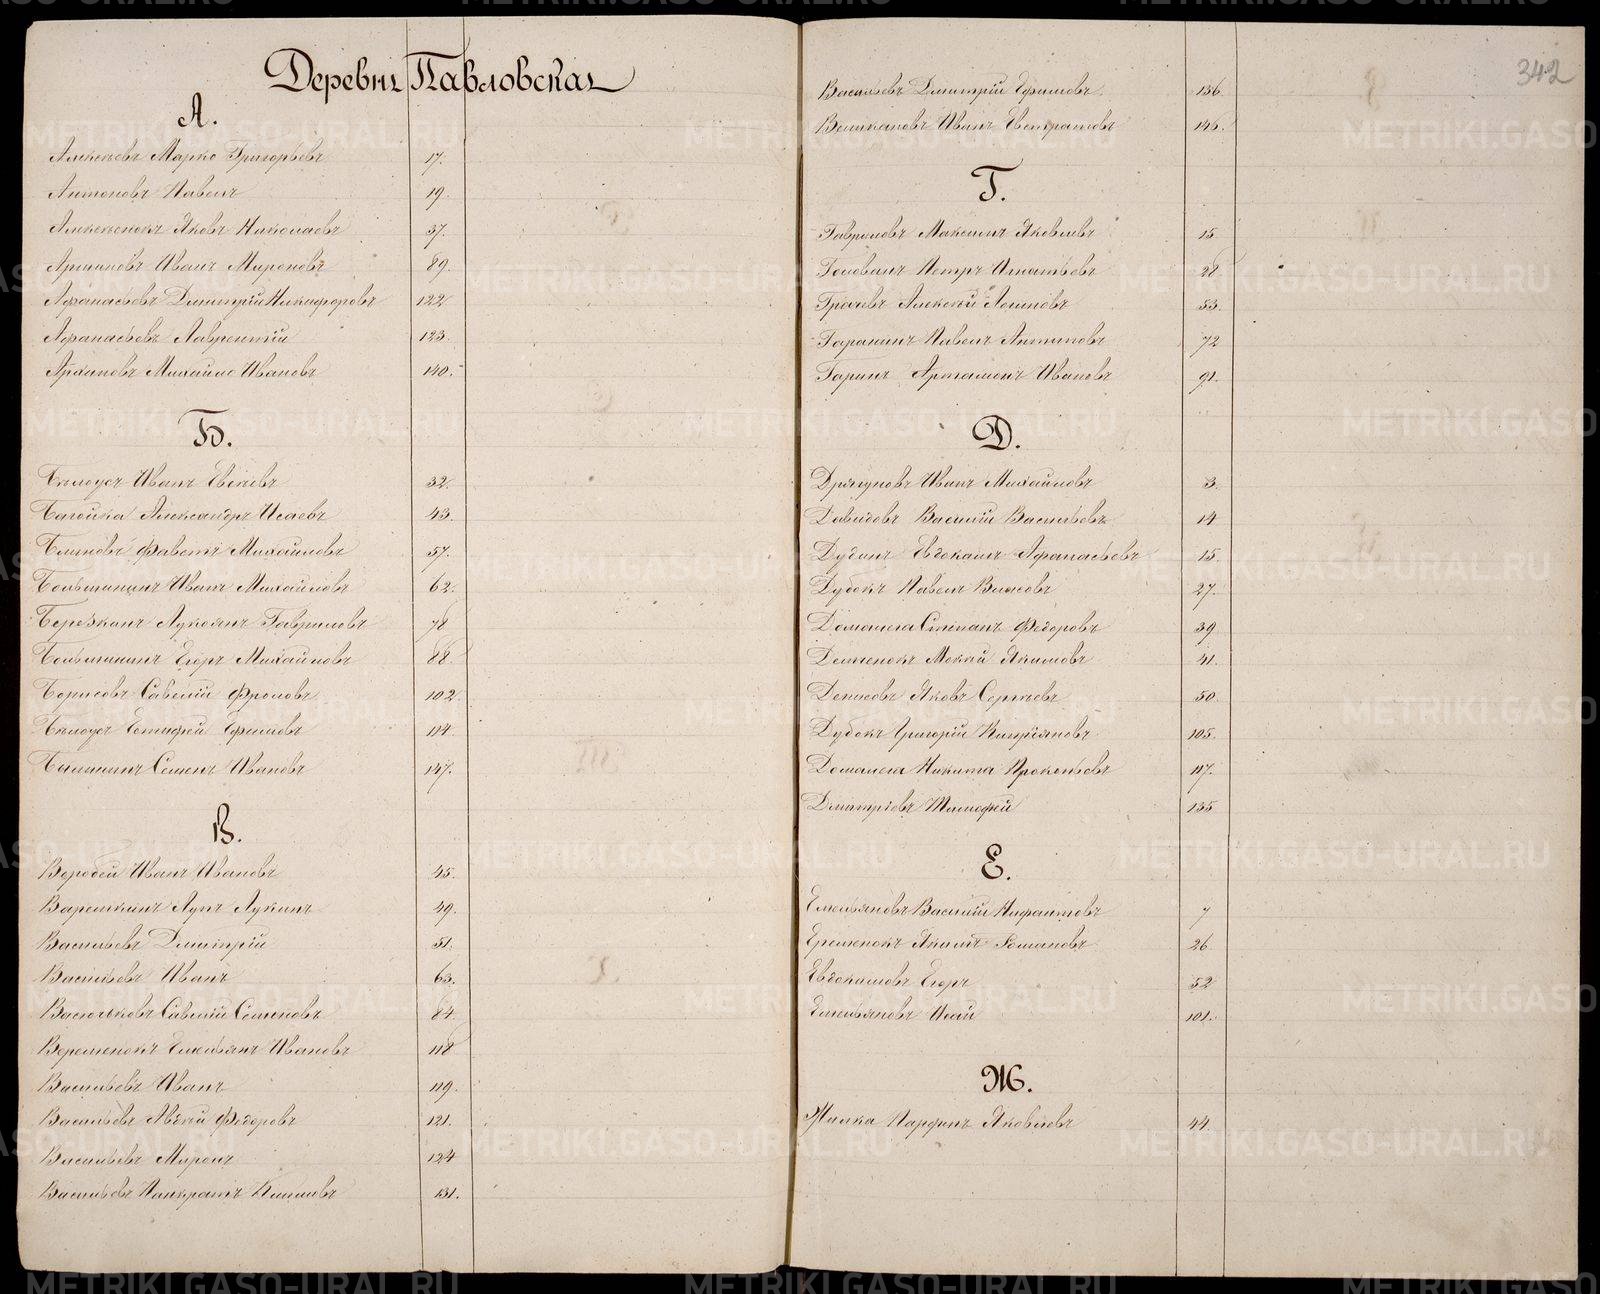 Деревня Павловская
А.
Алексѣевъ Марко Григорьевъ 17.
Антоновъ Павелъ 19.
Алексѣенокъ Яковъ Николаевъ 37.
Аршиновъ Иванъ Мироновъ 89.
Афанасьевъ Дмитрій Никифоровъ 122
Афанасьевъ Лаврентій 123.
Архиповъ Михайло Ивановъ 140.
Б.
Бѣлоусъ Иванъ Евсѣевъ 32.
Александръ Исаевъ 43.
Блиновъ Михайловъ 57.
Большининъ Иванъ Михайловъ 62.
Березкинъ Лукоянъ Гавриловъ 78
Большининъ Егоръ Михайловъ 88.
Борисовъ Савелій Фроловъ 102
Бѣлоусъ Ефимовъ 114.
Семенъ Ивановъ 147.
В.
Воробей Иванъ Ивановъ 45.
Варешкинъ Лупъ Лукинъ 49.
Васильевъ Дмитрій 51.
Васильевъ Иванъ 63.
Васильковъ Савелій Семеновъ 84
Веременокъ Емельянъ Ивановъ 118
Васильевъ Иванъ 119.
Васильевъ Авдѣй Федоровъ 121.
Васильевъ Миронъ 124
Васильевъ Панкратъ 131.
342
Васильевъ Дмитрій Ефимовъ 136
Великановъ Иванъ Евстратовъ 146.
Г.
Гавриловъ Максимъ Яковлевъ 15
Голованъ Петръ Игнатьевъ 28
Грачевъ Алексѣй Логиновъ 53.
Гаранинъ Павелъ Антиповъ 72
Гаринъ Артамонъ Ивановъ 91.
Д.
Дрягуновъ Иванъ Михайловъ 3.
Давидовъ Василій Васильевъ 14
Дудинъ Евдокимъ Афанасьевъ 15.
Дубокъ Павелъ Власовъ 27.
Доманега Степанъ Федоровъ 39
Демченокъ Мокѣй Якимовъ 41.
Денисовъ Яковъ Сергѣевъ 50
Дубокъ Григорій Кипріяновъ 105.
Доманега Никита Прокопьевъ 117.
Дмитріевъ Тимофей 135
Е.
Емельяновъ Василій Нифантовъ 7
Еременокъ Якимъ Романовъ 26
Евдокимовъ Егоръ 52
Емельяновъ Исай 101.
Ж.
Жилка Парфенъ Яковлевъ 44.
METRIKI.GASO-URAL.RU